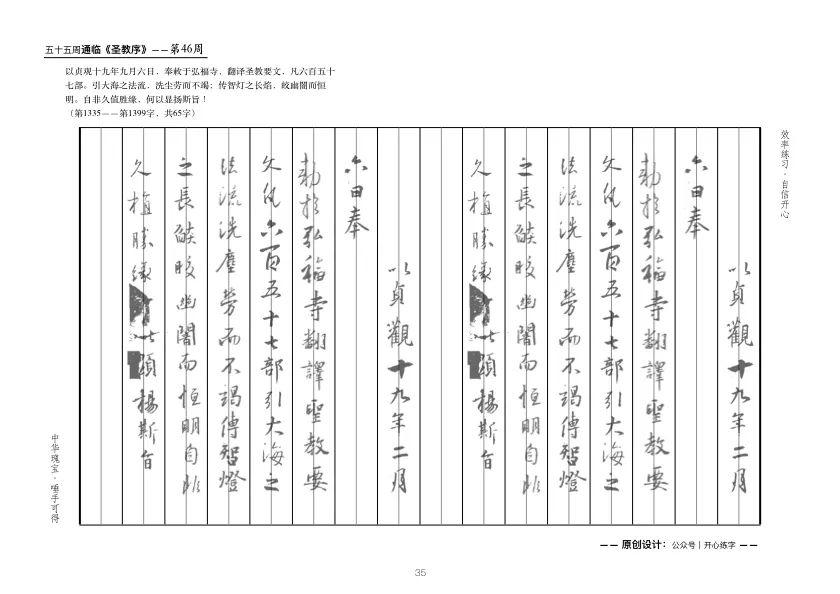 五十五周通临《圣教序》——第46周
以贞观十九年九月六日，奉敕于弘福寺，翻译圣教要文，凡六百五十
七部。引大海之法流，洗尘劳而不竭；传智灯之长焰，皎幽闇而恒
明。自非久值胜缘，何以显扬斯旨！
（第1335——第1399字，共65字）
效率练习·自信开心
以貞觀十九年二月
六日奉
勅於弘福寺翻譯聖教要
文凡六百五十七部引大海之
法流洗塵勞而不竭傳智燈
之長燄皎幽闇而恒明自非
久植勝緣以顯揚斯旨
以貞觀十九年二月
六日奉
勅於弘福寺翻譯聖教要
文凡六百五十七部引大海之
法流洗塵勞而不竭傳智燈
之長燄皎幽闇而恒明自非
久植勝緣以顯揚斯旨
中华瑰宝·唾手可得
—— 原创设计：公众号｜开心练字 ——
35